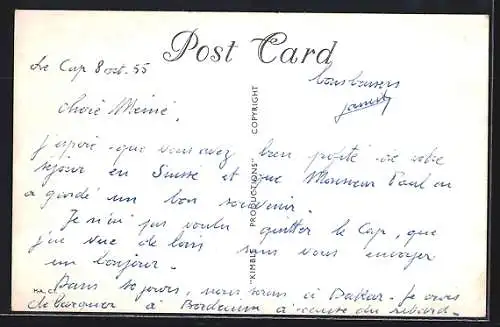 Post Card
Le Cap 8 oct. 55
bons baisers
Chère Mémé,
j'espère que vous avez bien profité de votre
séjour en Suisse et que Monsieur Paul en
a gardé un bon souvenir.
Je n'ai pas voulu quitter le Cap, que
j'ai vue de loin sans vous envoyer
un bonjour.
Dans 10 jours, nous serons à Dakar. Je crois
débarquer à Bordeaux à cause du retard.
"KIMBLE PRODUCTIONS" COPYRIGHT